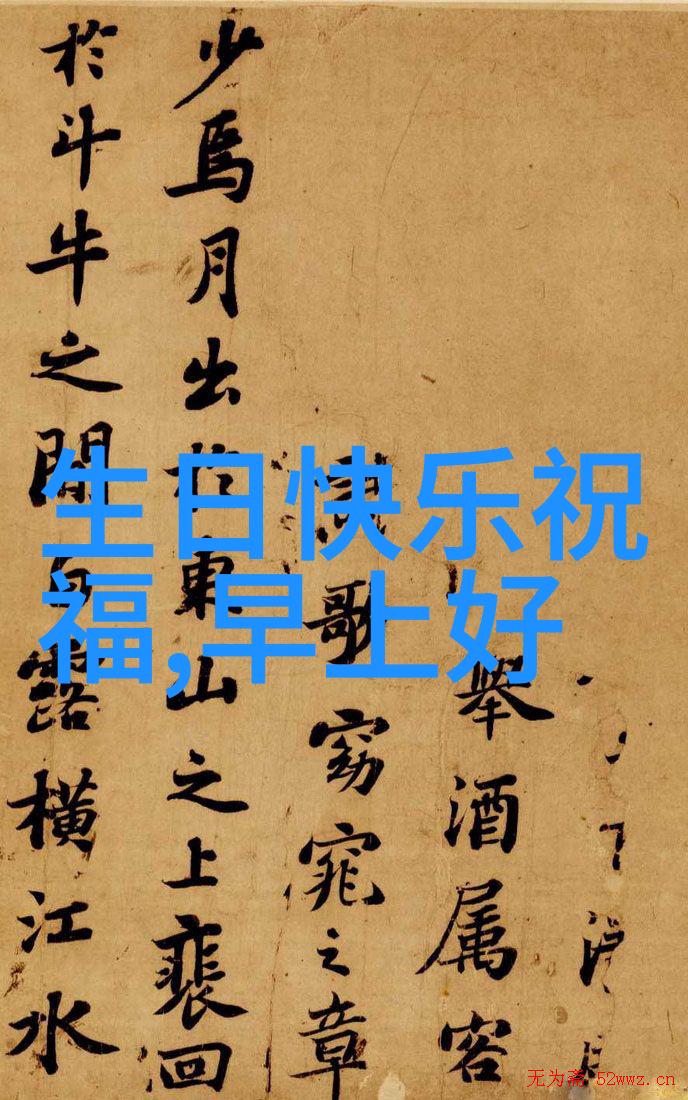 生日快乐祝
福,早上好
舉酒属客
歌窈窕之章
少焉月出於東山之上裴回
於斗牛之間白露橫江水
无为斋 52wwz.cn